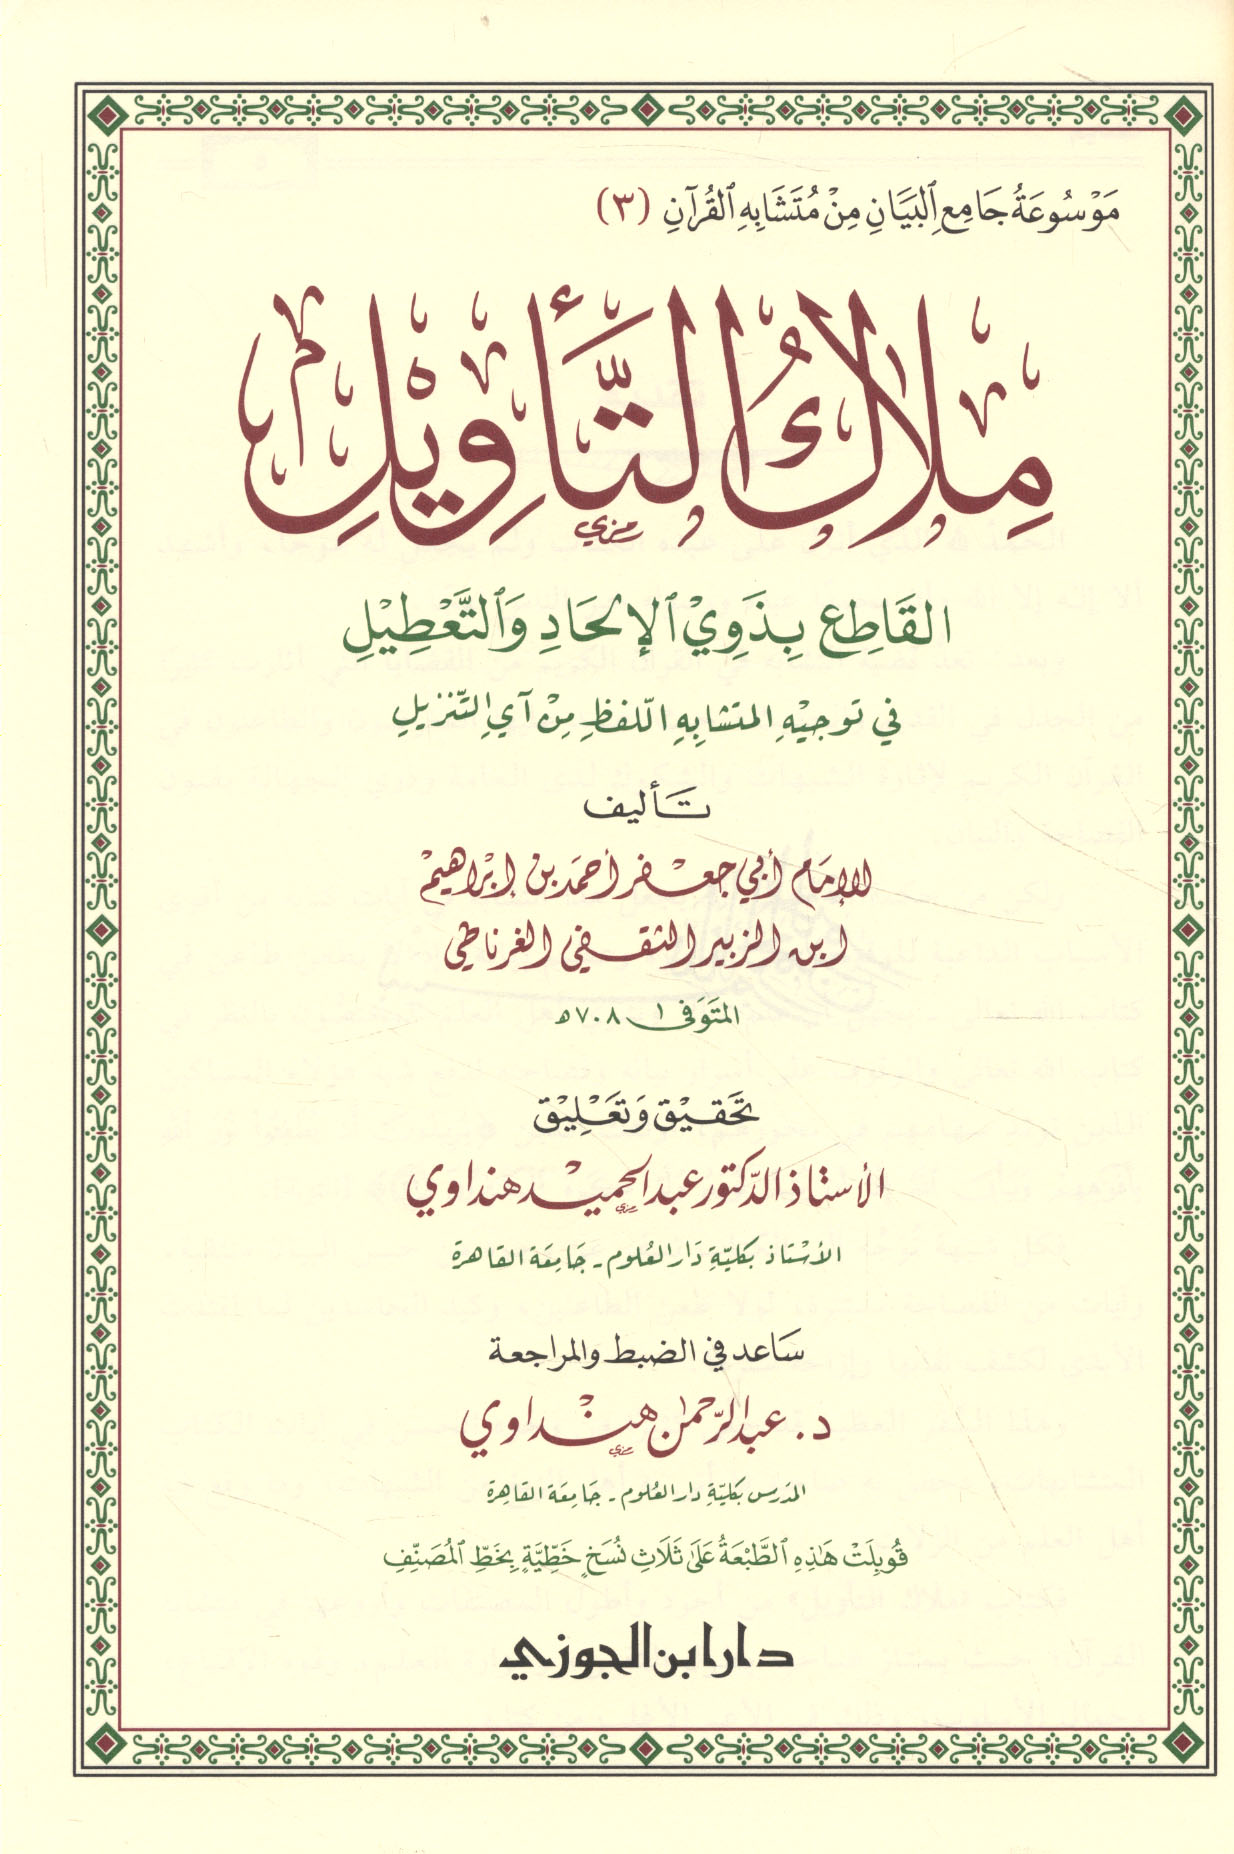 مَوْسُوعَةُ جَامِعِ ٱلبَيَانِ مِنْ مُتَشَابِهِ ٱلقُرْآنِ (٣)
مِلَاكُ التَّأْوِيْلِ
القَاطِعِ بِذَوِيْ ٱلإِلْحَادِ وَٱلتَّعْطِيْلِ
في توجيْهِ المتشابِهِ اللّفظِ مِنْ آيِ التّنزيلِ
تَأليف
للإمَام أبي جعفر أحمَد بن إبْراهيمْ
ابن الزبير الثقفي الغرناطي
المتَوفى ٧٠٨ هـ
تَحَقيْق وَتَعَلِيْق
الأستاذ الدّكتور عبد الحميْد هنداوي
الأسْتاذ بكليّةِ دَار العُلوم - جَامِعَة القاهرة
سَاعد في الضبط والمراجعة
د. عبد الرّحمن هنْداوي
المدَرس بكليّةِ دار العُلوم - جَامِعَة القاهِرة
قُوبِلَتْ هَٰذِهِ ٱلطَّبْعَةُ عَلَىٰ ثَلَاثِ نُسَخٍ خَطِّيَّةٍ بِخَطِّ ٱلمُصَنِّفِ
دار ابن الجوزي